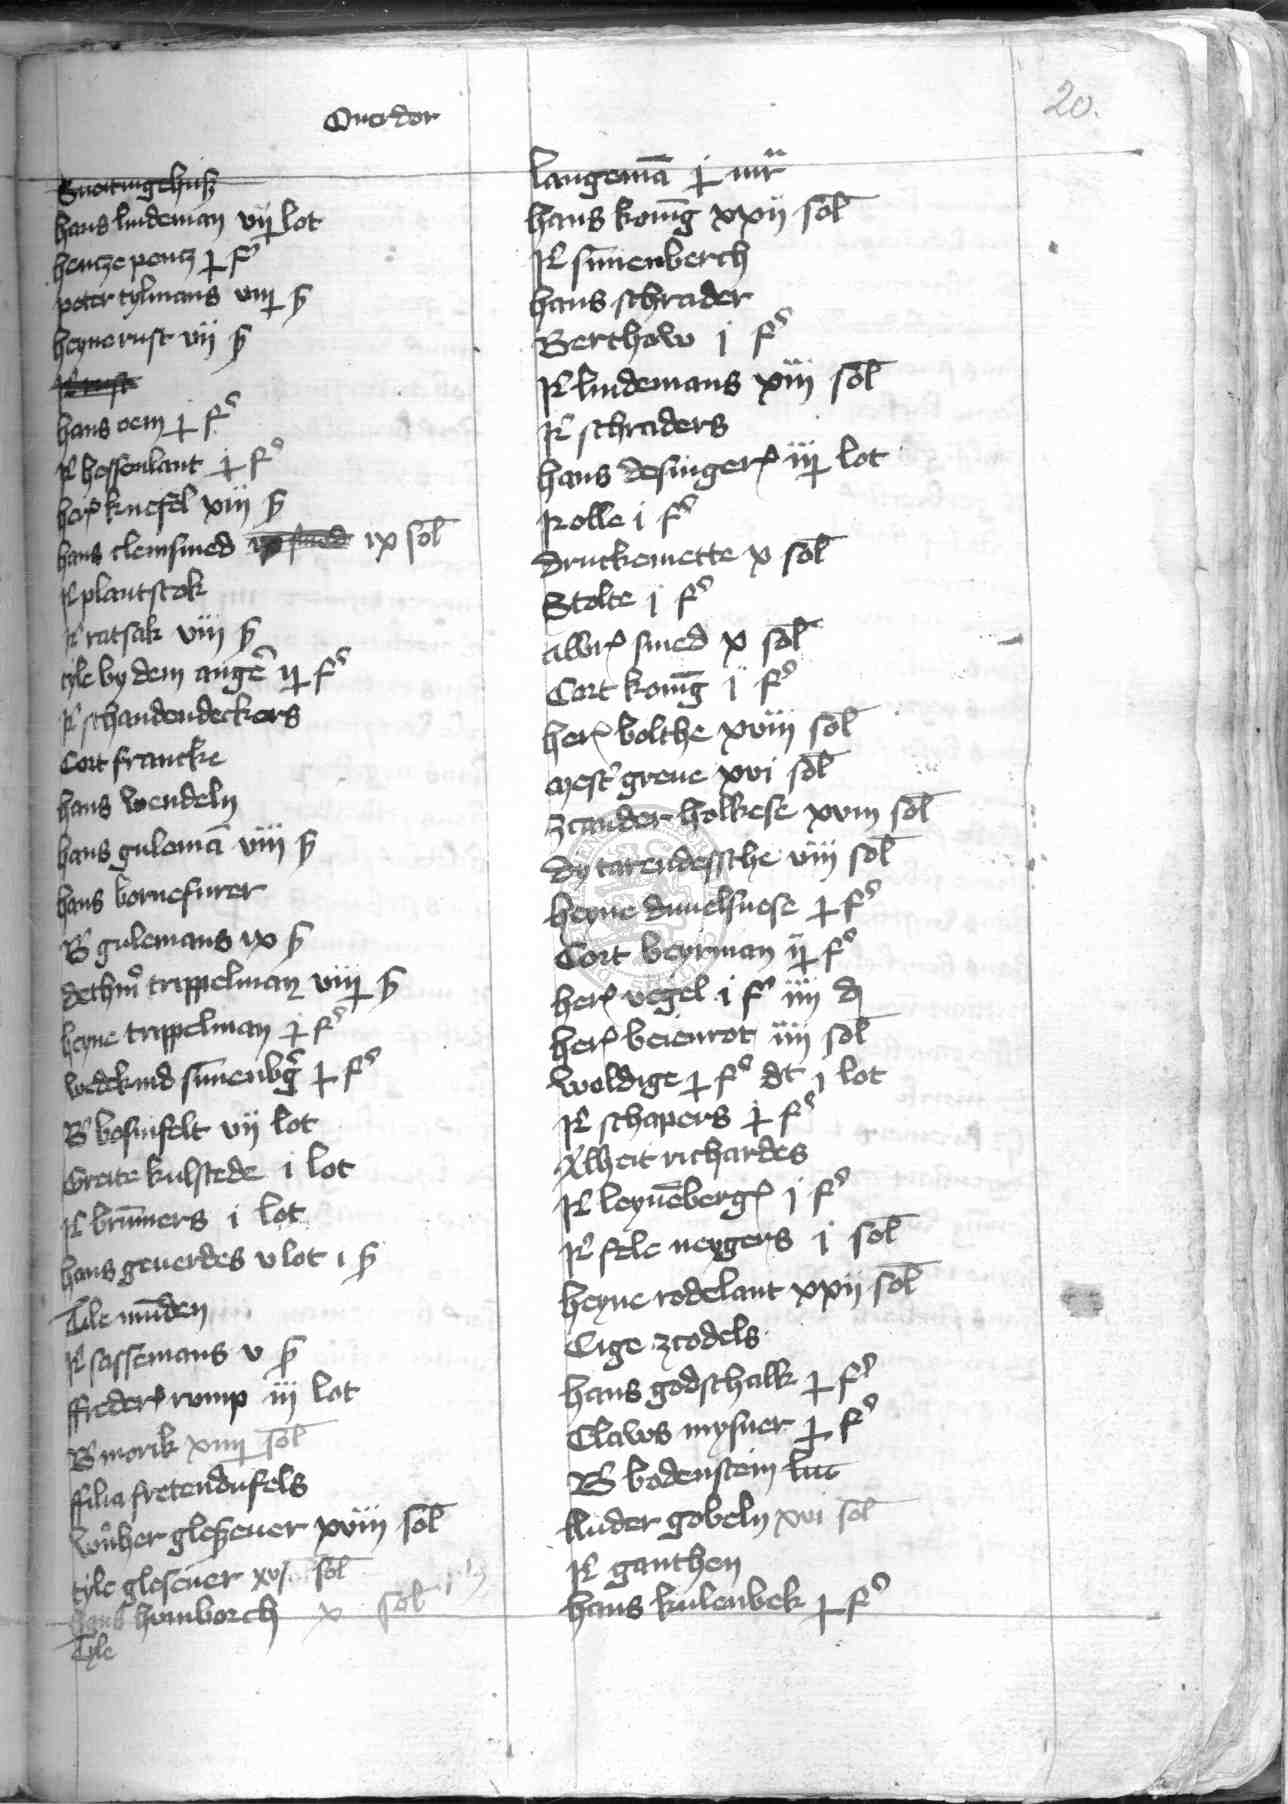 Ouerdor
20.
Snoitingehusz
hans lindeman vij lot
hentze pentz j f
peter tylmans viij
heyne rust vij
R rust
hans oem j f
R hessenlant j f
her knefel xiij
hans clensmed ix sol
R plantstok
R ratsak viij
tyle by dem ange ij f
R schandendeckers
Cort francke
hans wendeln
hans gulemā viij
hans bornefurer
B gulemans ix
dethm trippelman viij
heyne trippelman j f
wedekind sūnenbg j f
B bosinfelt vij lot
Greite kulstede i lot
R brūmers i lot
hans geuerdes v lot i
Tile mūden
R sassemans v
ffreder rump iij lot
B morik xiiij sol
ffilia fretendufels
wuher glesener xviij sol
tyle glesener xvj sol
hans homborch x sol
Tyle
langemā j mr
hans konīg xxij sol
R sūnenberch
hans schrader
Berthow j f
R lindemans xiij sol
R schraders
hans desinger iij lot
Rolle i f
druckemette x sol
Stolte j f
smed x sol
Cort konīg j f
her bolthe xviij sol
mest greue xvi sol
zcander holkese xviij sol
dy tarendessche viij sol
heyne duuelsnese j f
Cort beyrman ij f
her vegel i f iiij d
her beienrot iiij sol
woldige j f dt j lot
R schapers j f
Alheit richardes
R leynēberg j f
R fele neygers i sol
heyne rodelant xxij sol
Cige zcodels
hans godschalk j f
Claws mysner j f
B bodenstein
luder gobeln xvi sol
R ganthen
hans kulenbek j f